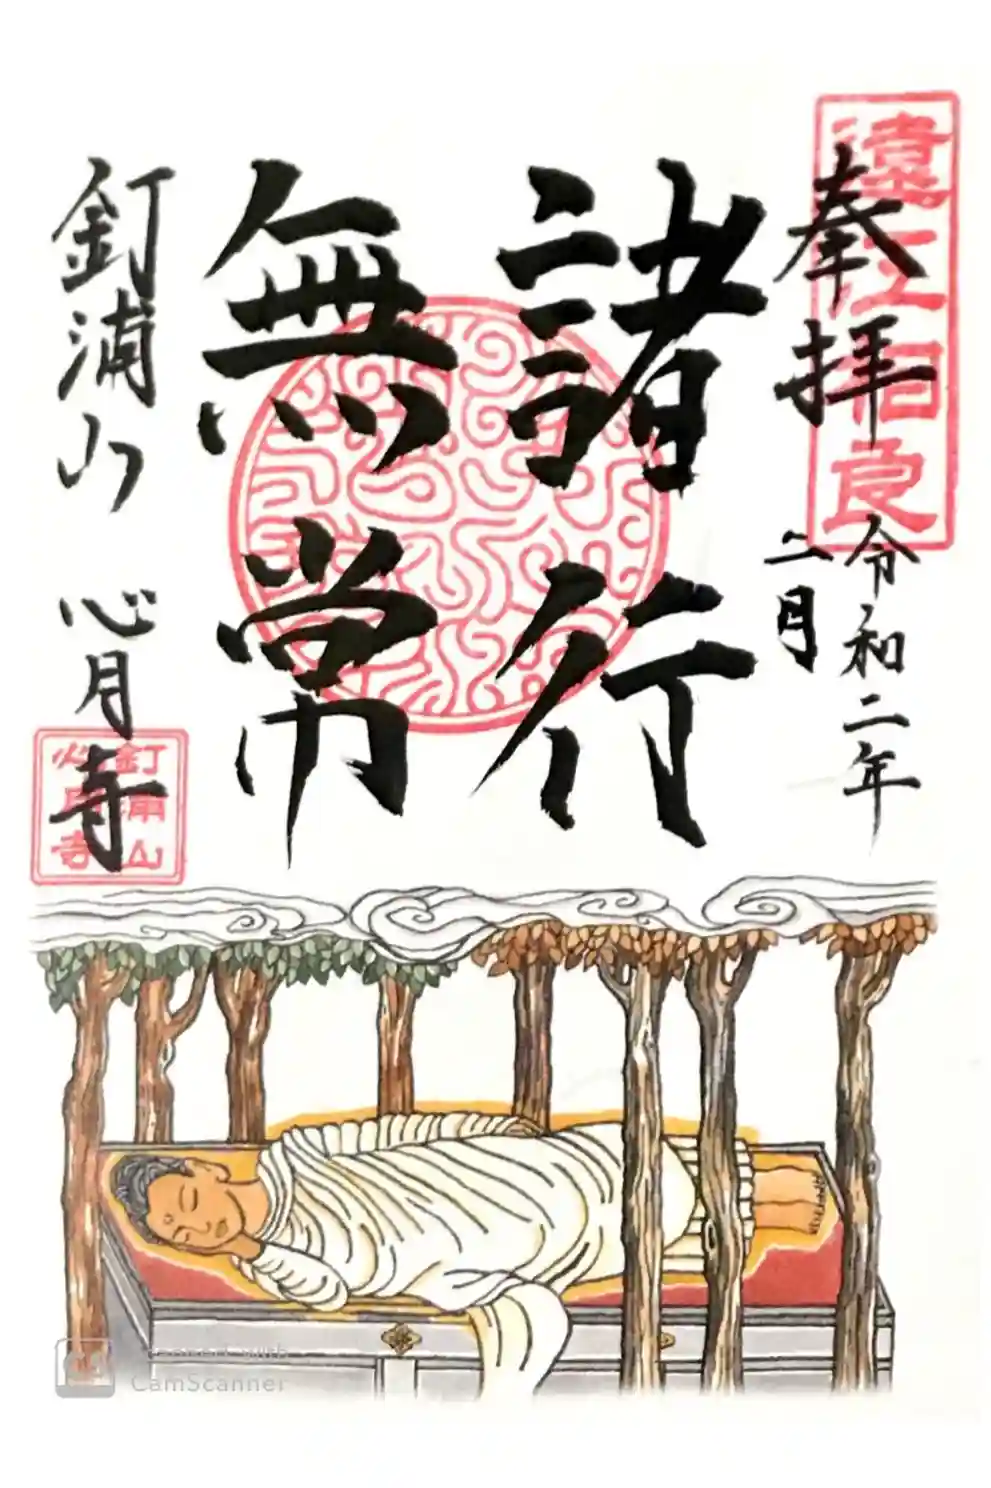 遠江相良
奉拝
令和二年
二月
諸行
無常
釘浦山 心月寺
釘浦山
心月寺
Scanned with
CamScanner